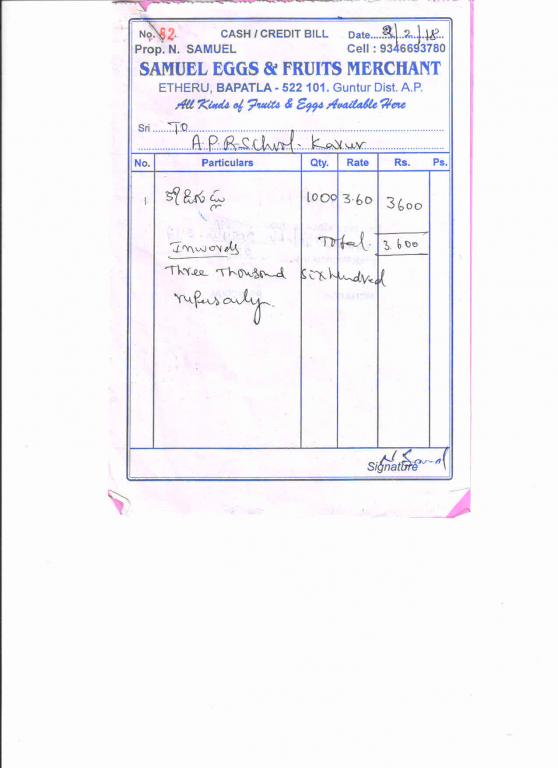 No. 62 CASH / CREDIT BILL Date 2/2/18
Prop. N. SAMUEL Cell : 9346693780
SAMUEL EGGS & FRUITS MERCHANT
ETHERU, BAPATLA - 522 101. Guntur Dist. A.P.
All Kinds of Fruits & Eggs Available Here
Sri To
A.P.R.School. Kavur
No. Particulars Qty. Rate Rs. Ps.
1 కోడిగుడ్లు 1000 3.60 3600
Total. 3.600
Inwords
Three Thousand Six hundred
rupees only.
Signature